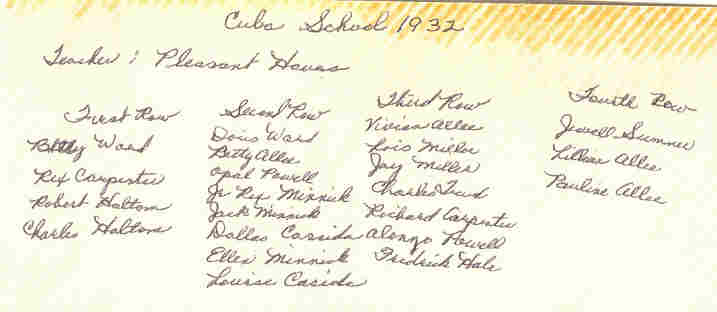 Cuba School 1932
Teacher : Pleasant Havens
First Row
Betty Ward
Rex Carpenter
Robert Haltom
Charles Haltom
Second Row
Doris Ward
Betty Allee
Opal Powell
Jr Rex Minnick
Jack Minnick
Dallas Casida
Ellen Minnick
Louise Casida
Third Row
Vivian Allee
Lois Miller
Jay Miller
Charles
Richard Carpenter
Alonzo Powell
Fredrick Hale
Fourth Row
Jewell Sumner
Lillian Allee
Pauline Allee